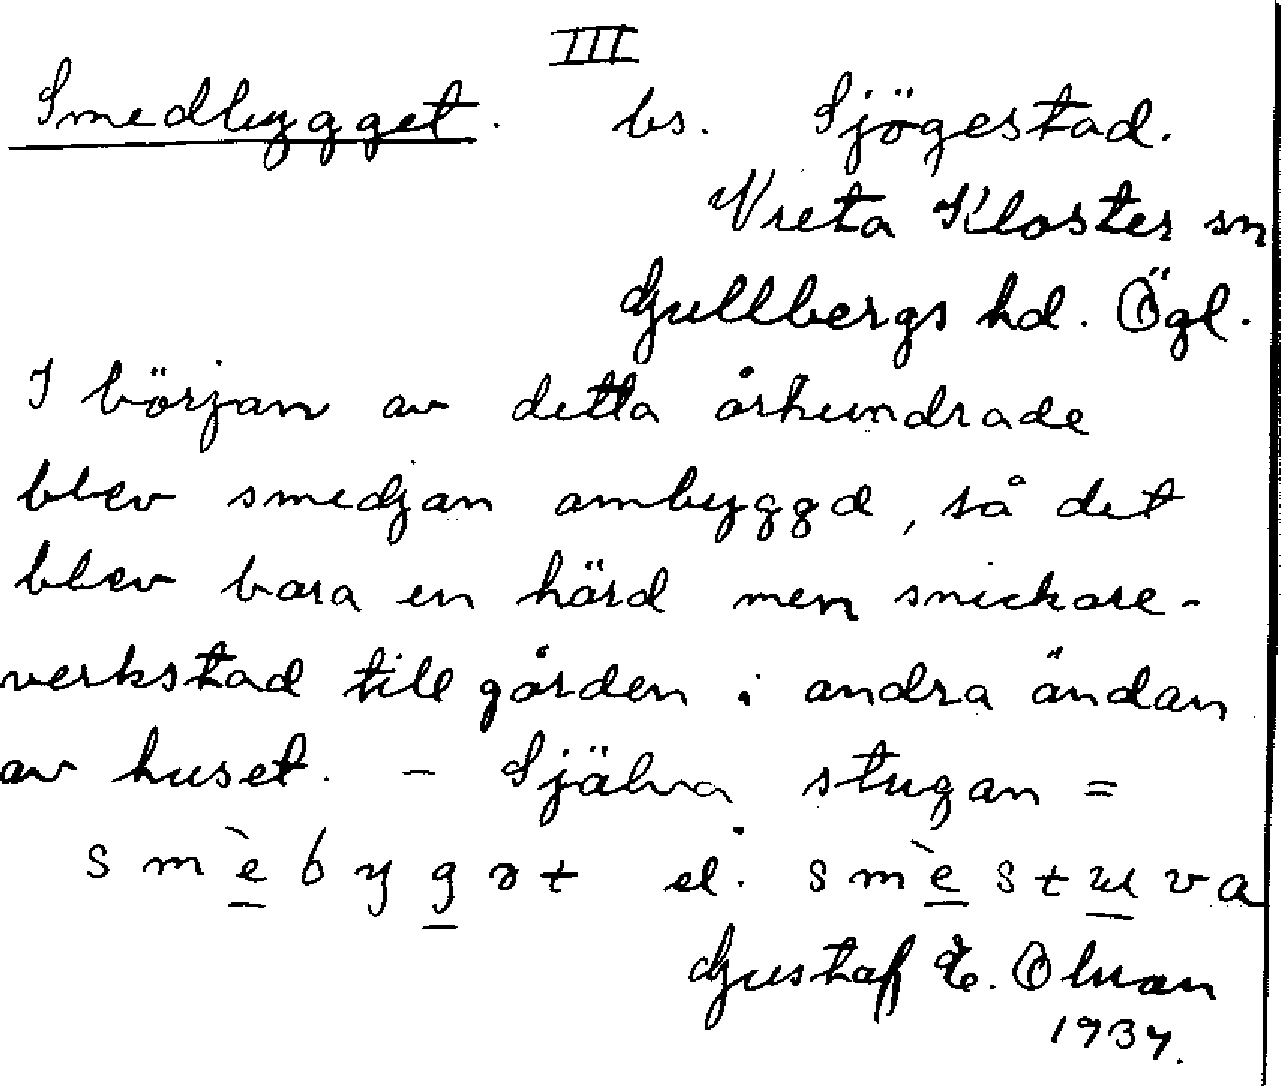 III
Smedbygget. bs. Sjögestad.
Vreta Kloster sn
Gullbergs hd. Ögl.
I början av detta århundrade
blev smedjan ombyggd, så det
blev bara en härd men snickare-
verkstad till gården i andra ändan
av huset. - Själva stugan =
smèbygət el. smèstuva
Gustaf E. Olman
1937.